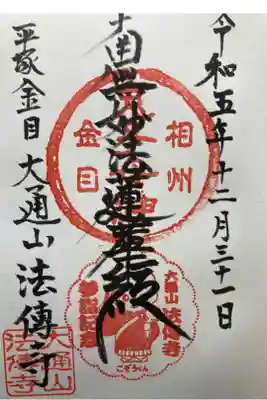 令和五年十二月三十一日
南無妙法蓮華経
相州
金目
平塚金目 大通山 法傳寺
大通山 法傳寺
参拝記念
こぞうくん
大通山
法傳寺